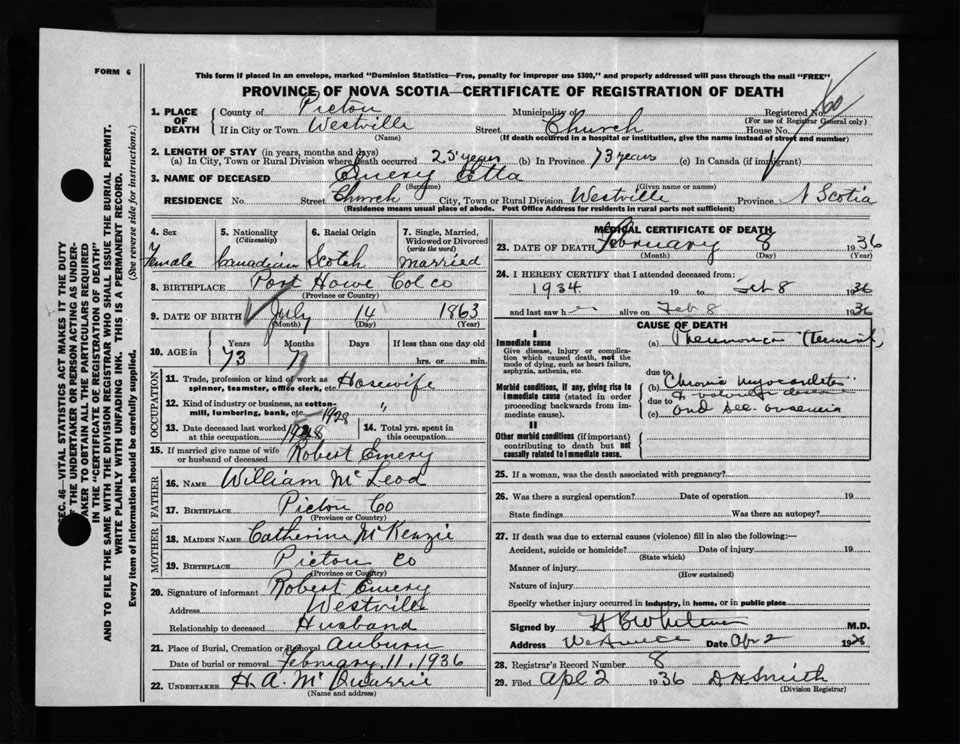 FORM 6
This form if placed in an envelope, marked "Dominion Statistics—Free, penalty for improper use $300," and properly addressed will pass through the mail "FREE"
PROVINCE OF NOVA SCOTIA—CERTIFICATE OF REGISTRATION OF DEATH
1. PLACE OF DEATH
County of Picton Municipality of Registered No.
(For use of Registrar General only)
If in City or Town Westville Street Church House No.
(Name) (If death occurred in a hospital or institution, give the name instead of street and number)
2. LENGTH OF STAY (in years, months and days)
(a) In City, Town or Rural Division where death occurred 25 years (b) In Province 73 years (c) In Canada (if immigrant)
3. NAME OF DECEASED Emery Etta
(Surname) (Given name or names)
RESIDENCE No. Street Church City, Town or Rural Division Westville Province N Scotia
(Residence means usual place of abode. Post Office Address for residents in rural parts not sufficient)
4. Sex 5. Nationality (Citizenship) 6. Racial Origin 7. Single, Married, Widowed or Divorced (write the word)
Female Canadian Scotch Married
8. BIRTHPLACE Port Howe Col co
(Province or Country)
9. DATE OF BIRTH July 14 1863
(Month) (Day) (Year)
10. AGE in Years Months Days If less than one day old
73 7 hrs. or min.
OCCUPATION
11. Trade, profession or kind of work as spinner, teamster, office clerk, etc. Hosewife
12. Kind of industry or business, as cotton-mill, lumbering, bank, etc. 1928
13. Date deceased last worked at this occupation 1928 14. Total yrs. spent in this occupation
15. If married give name of wife or husband of deceased Robert Emery
FATHER
16. NAME William McLeod
17. BIRTHPLACE Picton Co
(Province or Country)
MOTHER
18. MAIDEN NAME Catherine McKenzie
19. BIRTHPLACE Picton Co
(Province or Country)
20. Signature of informant Robert Emery
Address Westville
Relationship to deceased Husband
21. Place of Burial, Cremation or Removal Auburn
Date of burial or removal February, 11, 1936
22. UNDERTAKER H. A. McQuarrie
(Name and address)
MEDICAL CERTIFICATE OF DEATH
23. DATE OF DEATH February 8 1936
(Month) (Day) (Year)
24. I HEREBY CERTIFY that I attended deceased from
1934 19 to Feb 8 1936
and last saw her alive on Feb 8 1936
CAUSE OF DEATH
I
Immediate cause
Give disease, injury or complication which caused death, not the mode of dying, such as heart failure, asphyxia, asthenia, etc.
(a) Pneumonia (Terminal)
due to
Morbid conditions, if any, giving rise to immediate cause (stated in order proceeding backwards from immediate cause).
(b) Chronic myocarditis
due to
(c) and sec.
II
Other morbid conditions (if important) contributing to death but not causally related to immediate cause.
25. If a woman, was the death associated with pregnancy?
26. Was there a surgical operation? Date of operation 19
State findings Was there an autopsy?
27. If death was due to external causes (violence) fill in also the following:—
Accident, suicide or homicide? Date of injury 19
(State which)
Manner of injury
(How sustained)
Nature of injury
Specify whether injury occurred in industry, in home, or in public place
Signed by M.D.
Address Date Apr 2 1936
28. Registrar's Record Number 8
29. Filed Apl 2 1936 D H Smith
(Division Registrar)
SEC. 46—VITAL STATISTICS ACT MAKES IT THE DUTY
OF THE UNDERTAKER OR PERSON ACTING AS UNDERTAKER TO OBTAIN ALL THE PARTICULARS REQUIRED
IN THE "CERTIFICATE OF REGISTRATION OF DEATH"
AND TO FILE THE SAME WITH THE DIVISION REGISTRAR WHO SHALL ISSUE THE BURIAL PERMIT.
WRITE PLAINLY WITH UNFADING INK. THIS IS A PERMANENT RECORD.
Every item of information should be carefully supplied. (See reverse side for instructions.)